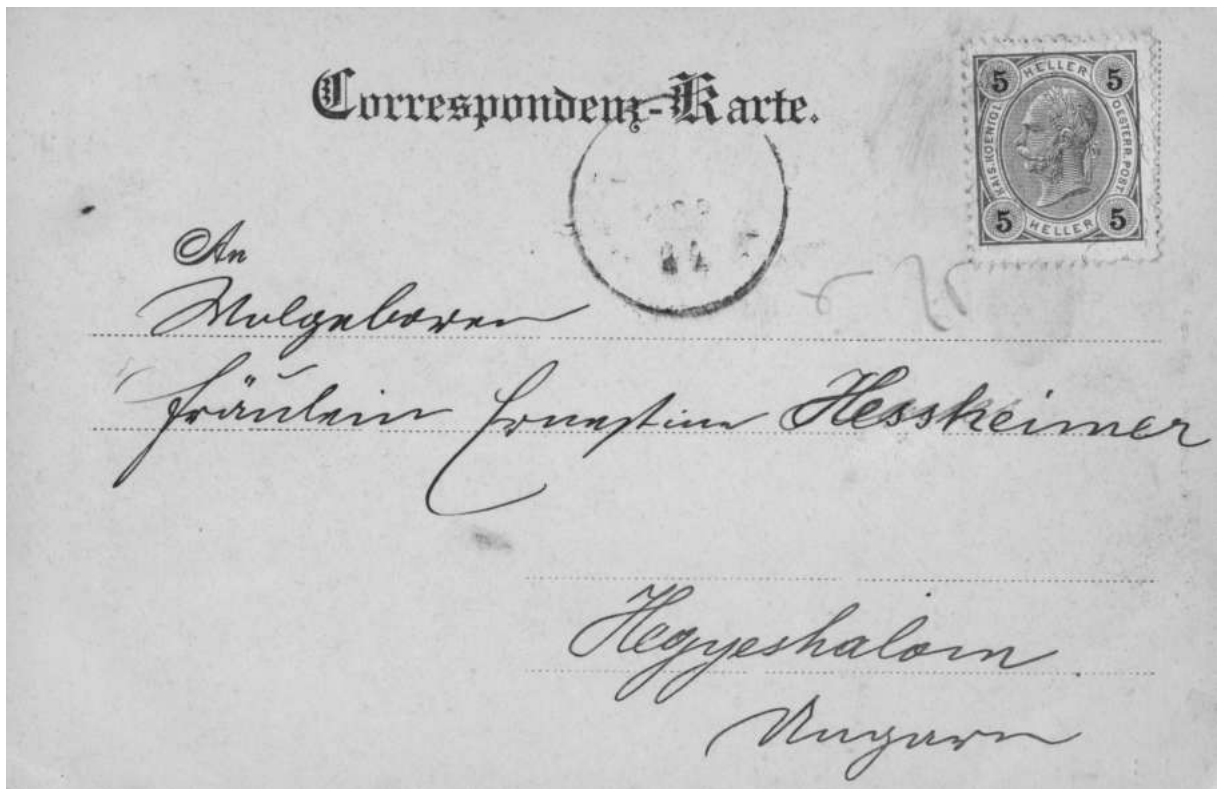 Correspondenz-Karte.
5 HELLER 5
KAIS. KOENIGL. OESTERR. POST.
5 HELLER 5
An
Wolgeboren
Fräulein Ernestine Hessheimer
Hegyeshalom
Ungarn